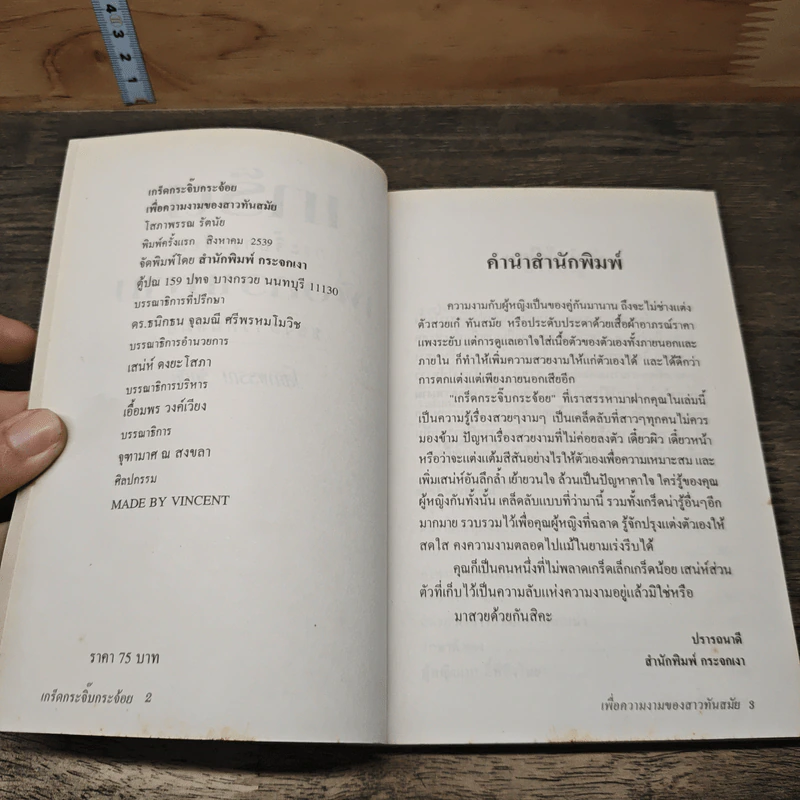 4
3
2
1
เกร็ดกระจิ๊บกระจ้อย
เพื่อความงามของสาวทันสมัย
โสภาพรรณ รัตนัย
พิมพ์ครั้งแรก สิงหาคม 2539
จัดพิมพ์โดย สำนักพิมพ์ กระจกเงา
ตู้ปณ 159 ปทจ บางกรวย นนทบุรี 11130
บรรณาธิการที่ปรึกษา
ดร.ธนิกธน จุลมณี ศรีพรหมโมวิช
บรรณาธิการอำนวยการ
เสน่ห์ ดงยะโสภา
บรรณาธิการบริหาร
เอื้อมพร วงค์เวียง
บรรณาธิการ
จุฑามาศ ณ สงขลา
ศิลปกรรม
MADE BY VINCENT
ราคา 75 บาท
เกร็ดกระจิ๊บกระจ้อย 2
คำนำสำนักพิมพ์
ความงามกับผู้หญิงเป็นของคู่กันมานาน ถึงจะไม่ช่างแต่ง
ตัวสวยเก๋ ทันสมัย หรือประดับประดาด้วยเสื้อผ้าอาภรณ์ราคา
แพงระยับ แต่การดูแลเอาใจใส่เนื้อตัวของตัวเองทั้งภายนอกและ
ภายใน ก็ทำให้เพิ่มความสวยงามให้แก่ตัวเองได้ และได้ดีกว่า
การตกแต่งแต่เพียงภายนอกเสียอีก
"เกร็ดกระจิ๊บกระจ้อย" ที่เราสรรหามาฝากคุณในเล่มนี้
เป็นความรู้เรื่องสวยๆงามๆ เป็นเคล็ดลับที่สาวๆทุกคนไม่ควร
มองข้าม ปัญหาเรื่องสวยงามที่ไม่ค่อยลงตัว เดี๋ยวผิว เดี๋ยวหน้า
หรือว่าจะแต่งแต้มสีสันอย่างไรให้ตัวเองเพื่อความเหมาะสม และ
เพิ่มเสน่ห์อันลึกล้ำ เย้ายวนใจ ล้วนเป็นปัญหาคาใจ ใคร่รู้ของคุณ
ผู้หญิงกันทั้งนั้น เคล็ดลับแบบที่ว่ามานี้ รวมทั้งเกร็ดน่ารู้อื่นๆอีก
มากมาย รวบรวมไว้เพื่อคุณผู้หญิงที่ฉลาด รู้จักปรุงแต่งตัวเองให้
สดใส คงความงามตลอดไปแม้ในยามเร่งรีบได้
คุณก็เป็นคนหนึ่งที่ไม่พลาดเกร็ดเล็กเกร็ดน้อย เสน่ห์ส่วน
ตัวที่เก็บไว้เป็นความลับแห่งความงามอยู่แล้วมิใช่หรือ
มาสวยด้วยกันสิคะ
ปรารถนาดี
สำนักพิมพ์ กระจกเงา
เพื่อความงามของสาวทันสมัย 3